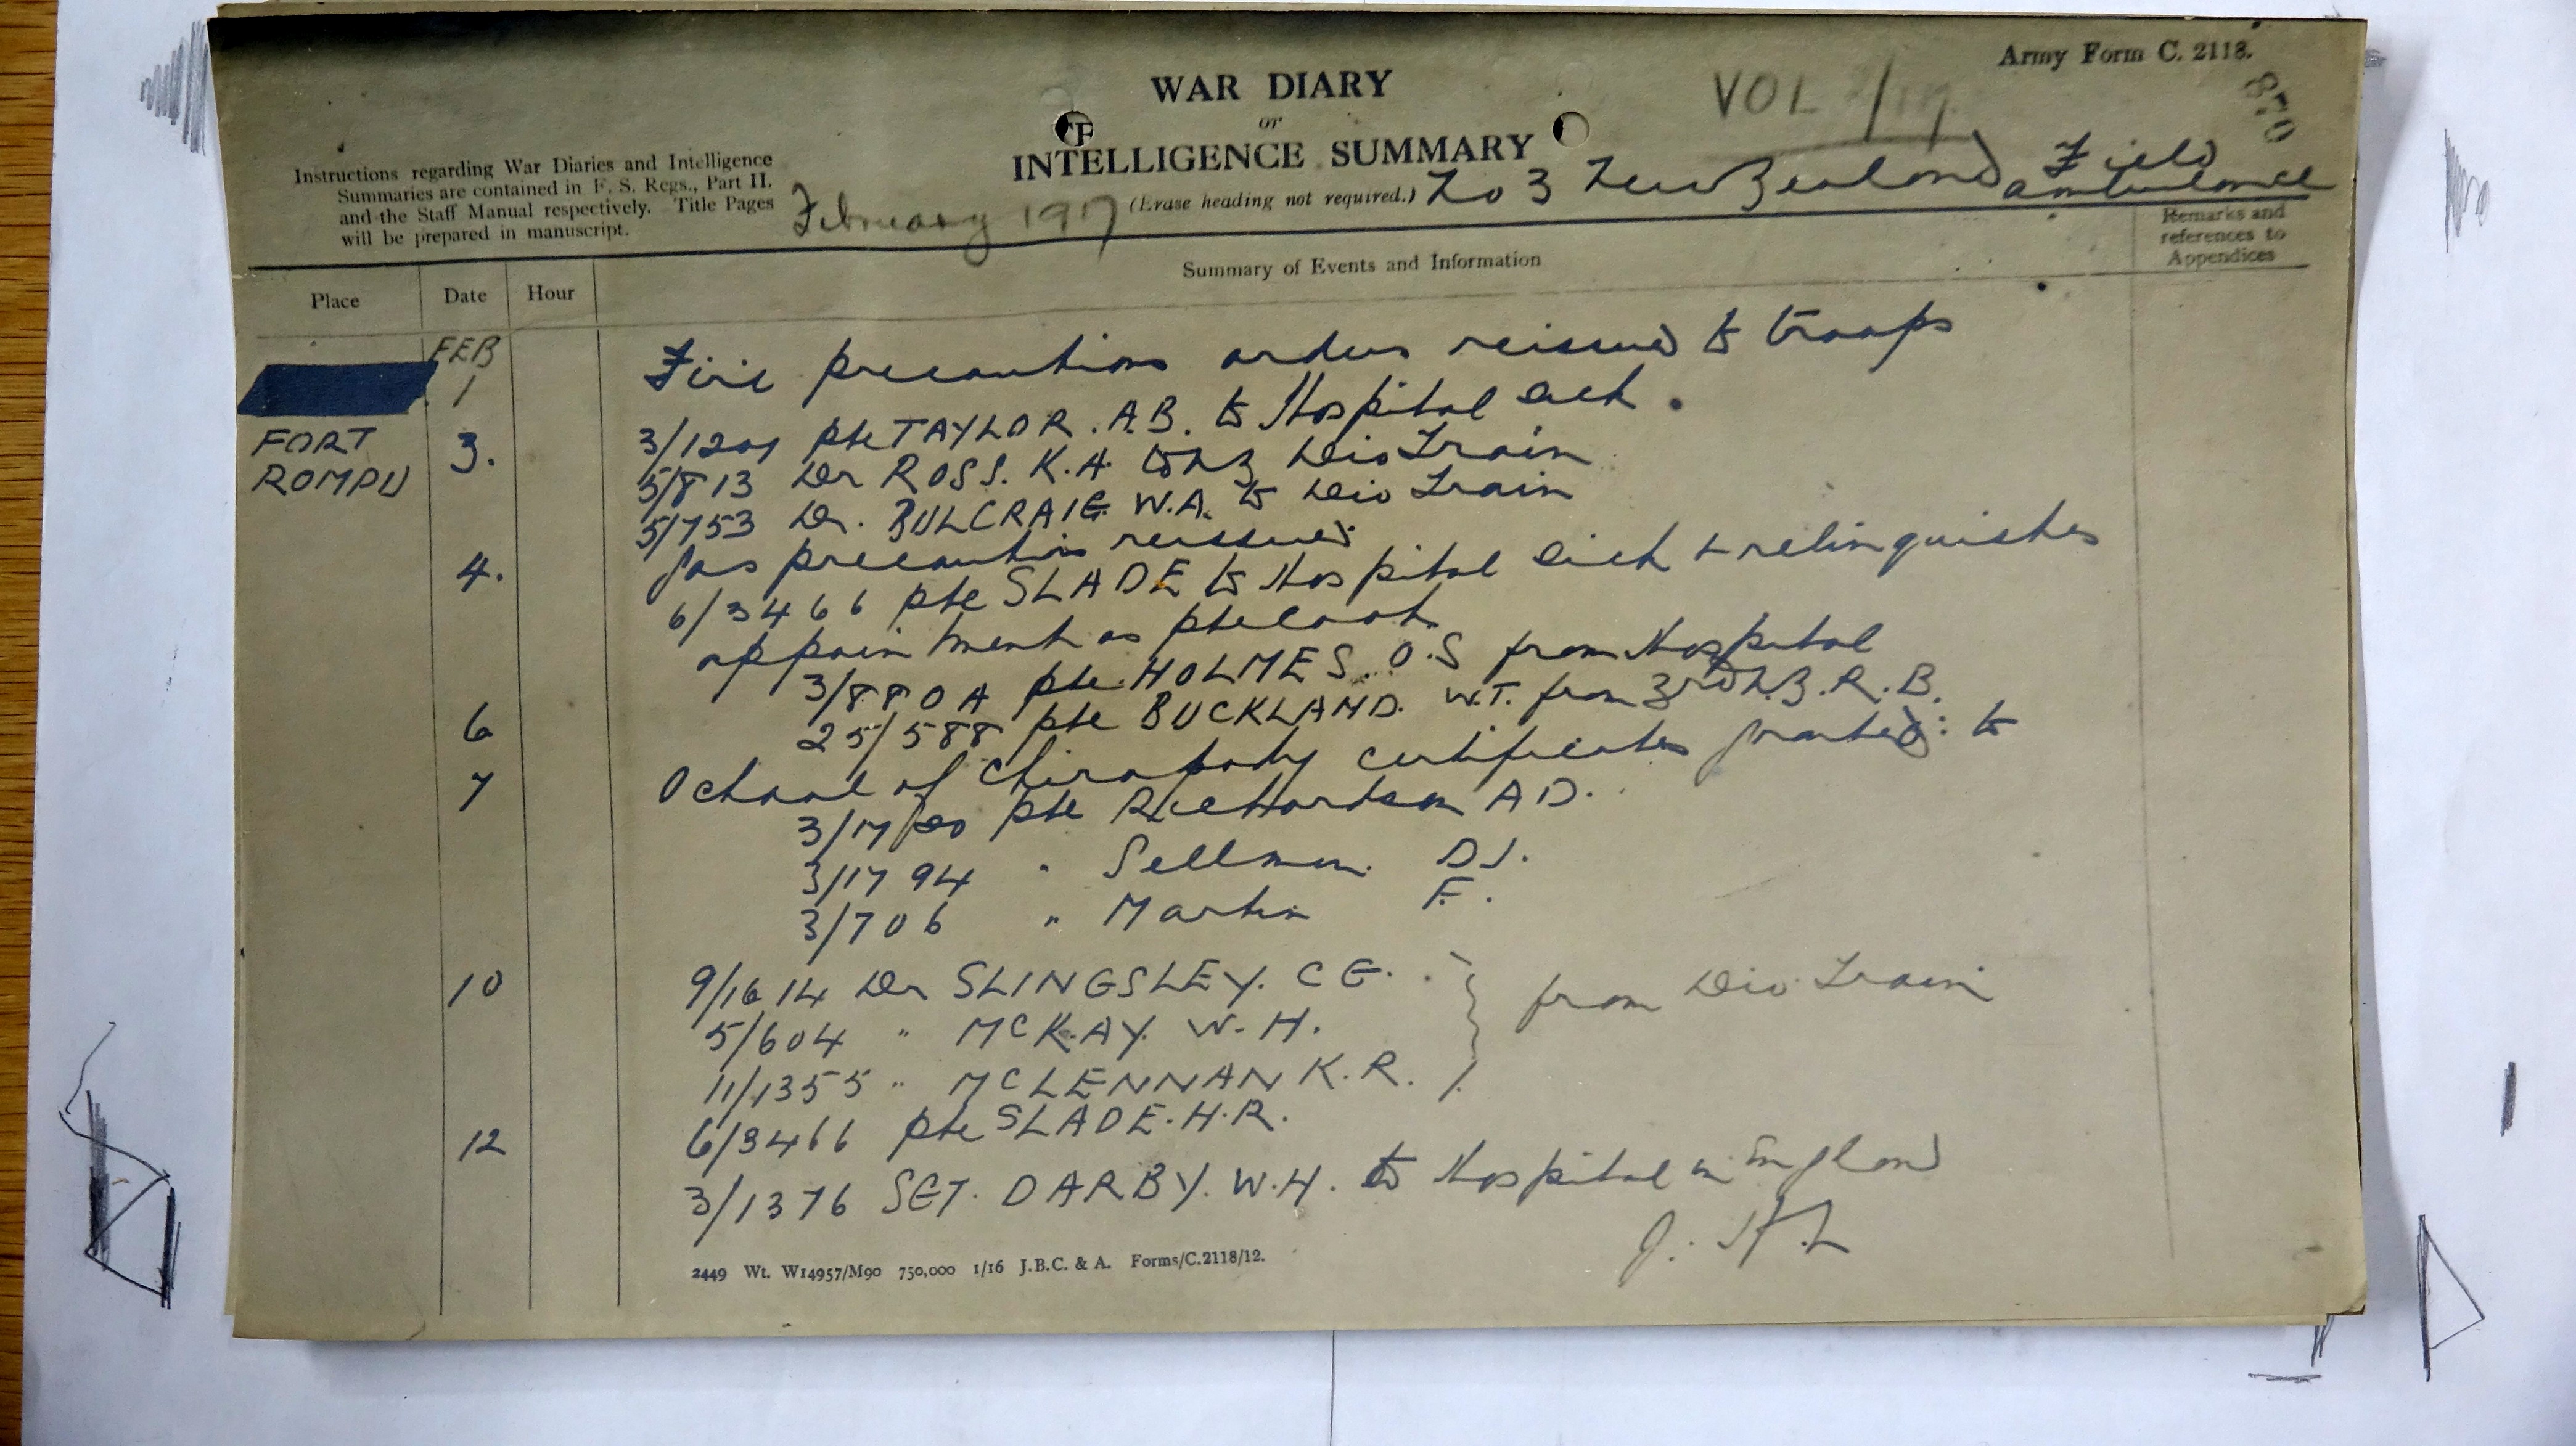 Army Form C. 2118.
WAR DIARY
or
INTELLIGENCE SUMMARY
(Erase heading not required.)
VOL
870
Instructions regarding War Diaries and Intelligence
Summaries are contained in F. S. Regs., Part II.
and the Staff Manual respectively. Title Pages
will be prepared in manuscript.
February 1917
No 3 New Zealand Field
ambulance
Place
Date
Hour
Summary of Events and Information
Remarks and
references to
Appendices
FEB
1 Fire precautions orders reissued to troops
FORT
ROMPU
3. 3/1201 Pte TAYLOR. A.B. to Hospital sick.
5/813 Dr ROSS. K.A. to NZ Div Train
5/753 Dr. BULCRAIG. W.A. to Div Train
4. Gas precautions reissued
6/3466 Pte SLADE to Hospital sick & relinquishes
appointment as Pte Cook
3/880A Pte HOLMES. O.S from Hospital
6 25/588 Pte BUCKLAND. W.T. from 3rd N.Z.R.B.
7 School of Chiropody certificates granted: to
Pte Richardson A D.
3/1794 " Sellman. DJ.
3/706 " Martin F.
10 9/1614 Dr SLINGSLEY. C G. } from Div Train
5/604 " McKAY. W. H.
11/1355 " McLENNAN K.R.
12 6/3466 Pte SLADE. H.R.
3/1376 SGT. DARBY. W.H. to Hospital in England
2449 Wt. W14957/M90 750,000 1/16 J.B.C. & A. Forms/C.2118/12.